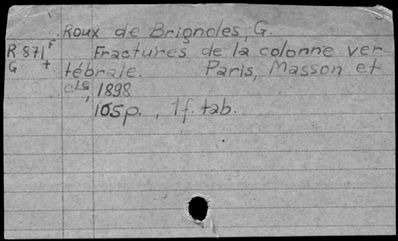 Roux de Brignoles, G.
R 871 F Fractures de la colonne ver
G + tébrale. Paris, Masson et
cie, 1898
105p., 1f. tab.